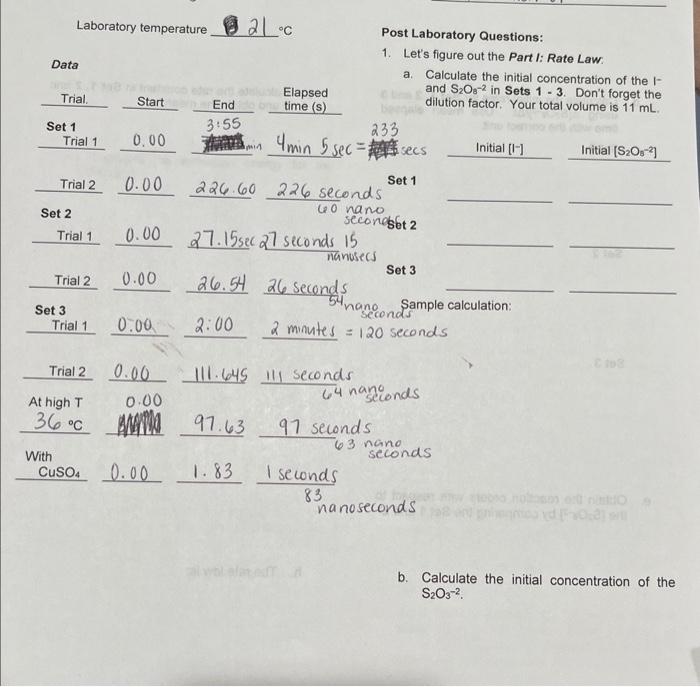 Laboratory temperature 21 °C
Data
Trial. Start End Elapsed time (s)
Set 1
Trial 1 0.00 3:55 min 4min 5 sec = 233 secs
Trial 2 0.00 226.60 226 seconds
60 nano seconds
Set 2
Trial 1 0.00 27.15sec 27 seconds 15
nanosecs
Trial 2 0.00 26.54 26 seconds
54 nano seconds
Set 3
Trial 1 0:00 2:00 2 minutes = 120 seconds
Trial 2 0.00 111.645 111 seconds
64 nano seconds
At high T
36 °C 0.00 97.63 97 seconds
63 nano seconds
With
CuSO₄ 0.00 1.83 1 seconds
83
nanoseconds
Post Laboratory Questions:
1. Let's figure out the Part I: Rate Law.
a. Calculate the initial concentration of the I-
and S₂O₈⁻² in Sets 1 - 3. Don't forget the
dilution factor. Your total volume is 11 mL.
Initial [I⁻] Initial [S₂O₈⁻²]
Set 1
Set 2
Set 3
Sample calculation:
b. Calculate the initial concentration of the
S₂O₃⁻².